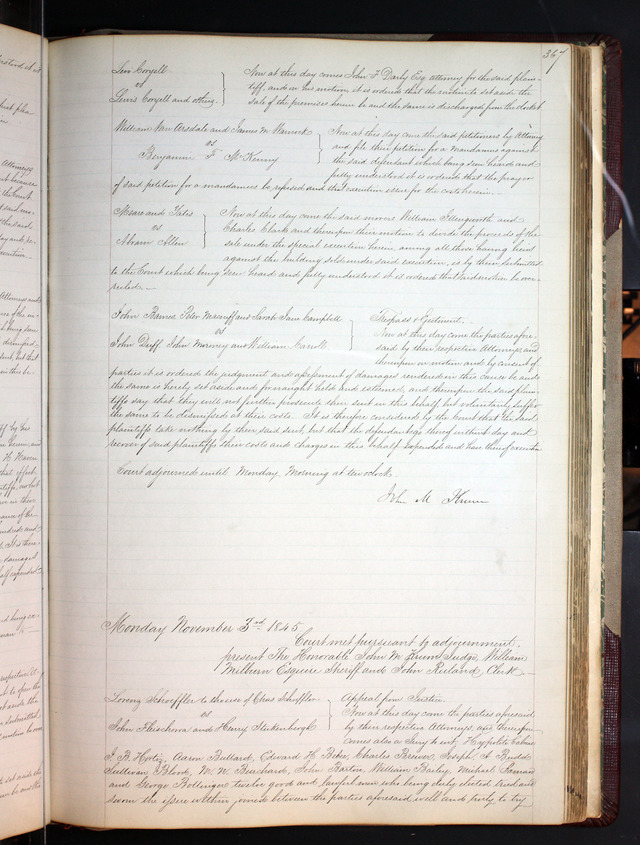 367
Levi Coryell
vs
Lewis Coryell and others
Now at this day comes John F Darby Esq attorney for the said plain-
tiff, and on his motion it is ordered that the
sale of the premises herein be and the same is discharged from the docket
William Van Arsdale and James M Warnick
vs
Benjamin F McKenny
Now at this day come the said petitioners by Attorney
and file their petition for a mandamus against
the said defendant which being seen heard and
fully understood it is ordered that the prayer
of said petition for a mandamus be refused and that execution issue for the costs herein.
and Yates
vs
Abram Allen
Now at this day come the said movers William Illengworth and
Charles Clark and thereupon their motion to divide the proceeds of the
sale under the special execution herein, among all those having liens
against the building sold under said execution, is by them submitted
to the Court which being seen heard and fully understood it is ordered that said motion be over-
ruled.
John Barnes Peter and Sarah Jane Campbell
vs
John Duff John Morony and William Carroll
Trespass & Ejectment.
Now at this day come the parties afore-
said by their respective Attorneys, and
thereupon on motion and by consent of
parties it is ordered the judgment and assessment of damages rendered in this cause be and
the same is hereby set aside and for naught held and esteemed, and thereupon the said plain-
tiffs say that they will not further prosecute their suit in this behalf but voluntarily suffer
the same to be dismissed at their costs. It is therefore considered by the Court that the said
plaintiffs take nothing by their said suit, but that the defendants go thereof without day and
recover of said plaintiffs their costs and charges in this behalf expended and have thereof execution
Court adjourned until Monday Morning at ten oclock.
John M Krum
Monday November 3rd 1845.
Court met pursuant to adjournment.
present The Honorable John M Krum Judge, William
Milburn Esquire Sheriff and John Ruland, Clerk.
Lorenz Schoeffler to the use of Elias Schoffler
vs
John and Henry
Appeal from Justice.
Now at this day come the parties aforesaid
by their respective Attorneys, and thereupon
comes also a Jury to wit,
J. B. Aaron Bullard, Edward H. Charles Brewer, Joseph A Budd
Sullivan Blood, W. W. John William Bailey, Michael
and George Bollinger twelve good and lawful men who being duly elected tried and
sworn the issue within joined between the parties aforesaid well and truly to try